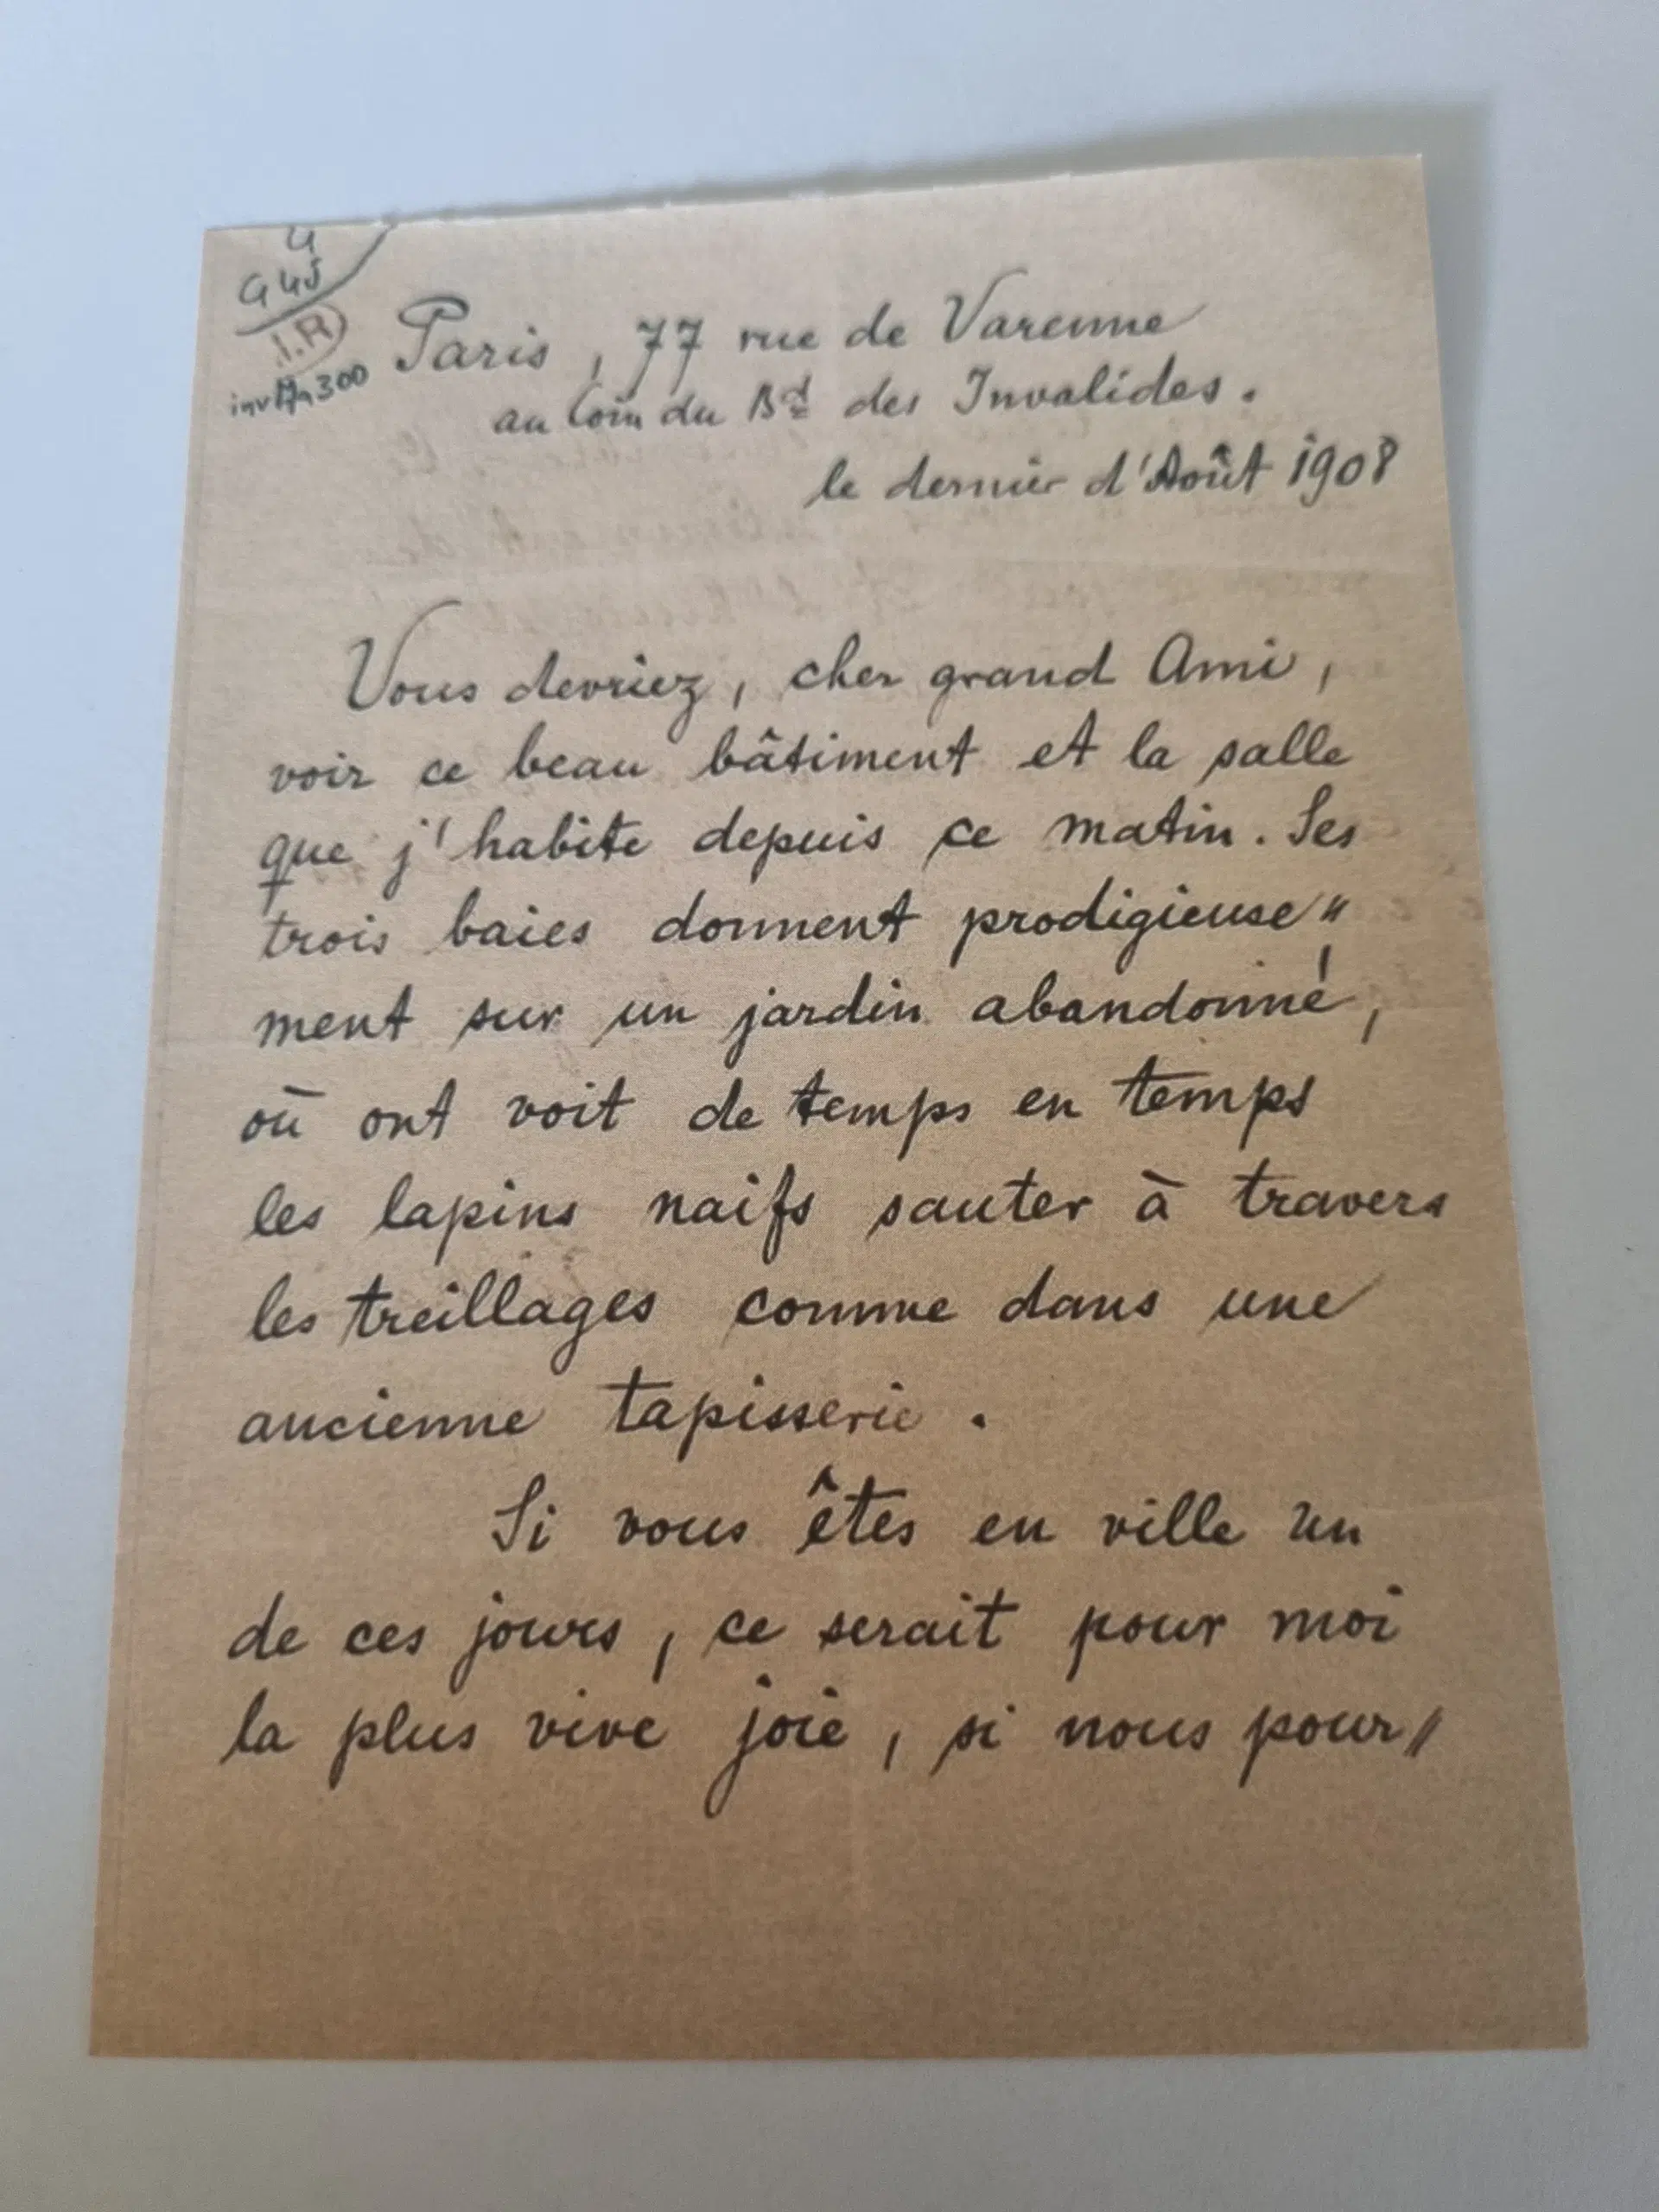 4
945
I.R
inv Ma 300
Paris, 77 rue de Varenne
au Coin du Bd des Invalides.
le dernier d'Août 1908
Vous devriez, cher grand Ami,
voir ce beau bâtiment et la salle
que j'habite depuis ce matin. Ses
trois baies donnent prodigieuse"
ment sur un jardin abandonné,
où ont voit de temps en temps
les lapins naifs sauter à travers
les treillages comme dans une
ancienne tapisserie.
Si vous êtes en ville un
de ces jours, ce serait pour moi
la plus vive joie, si nous pour"